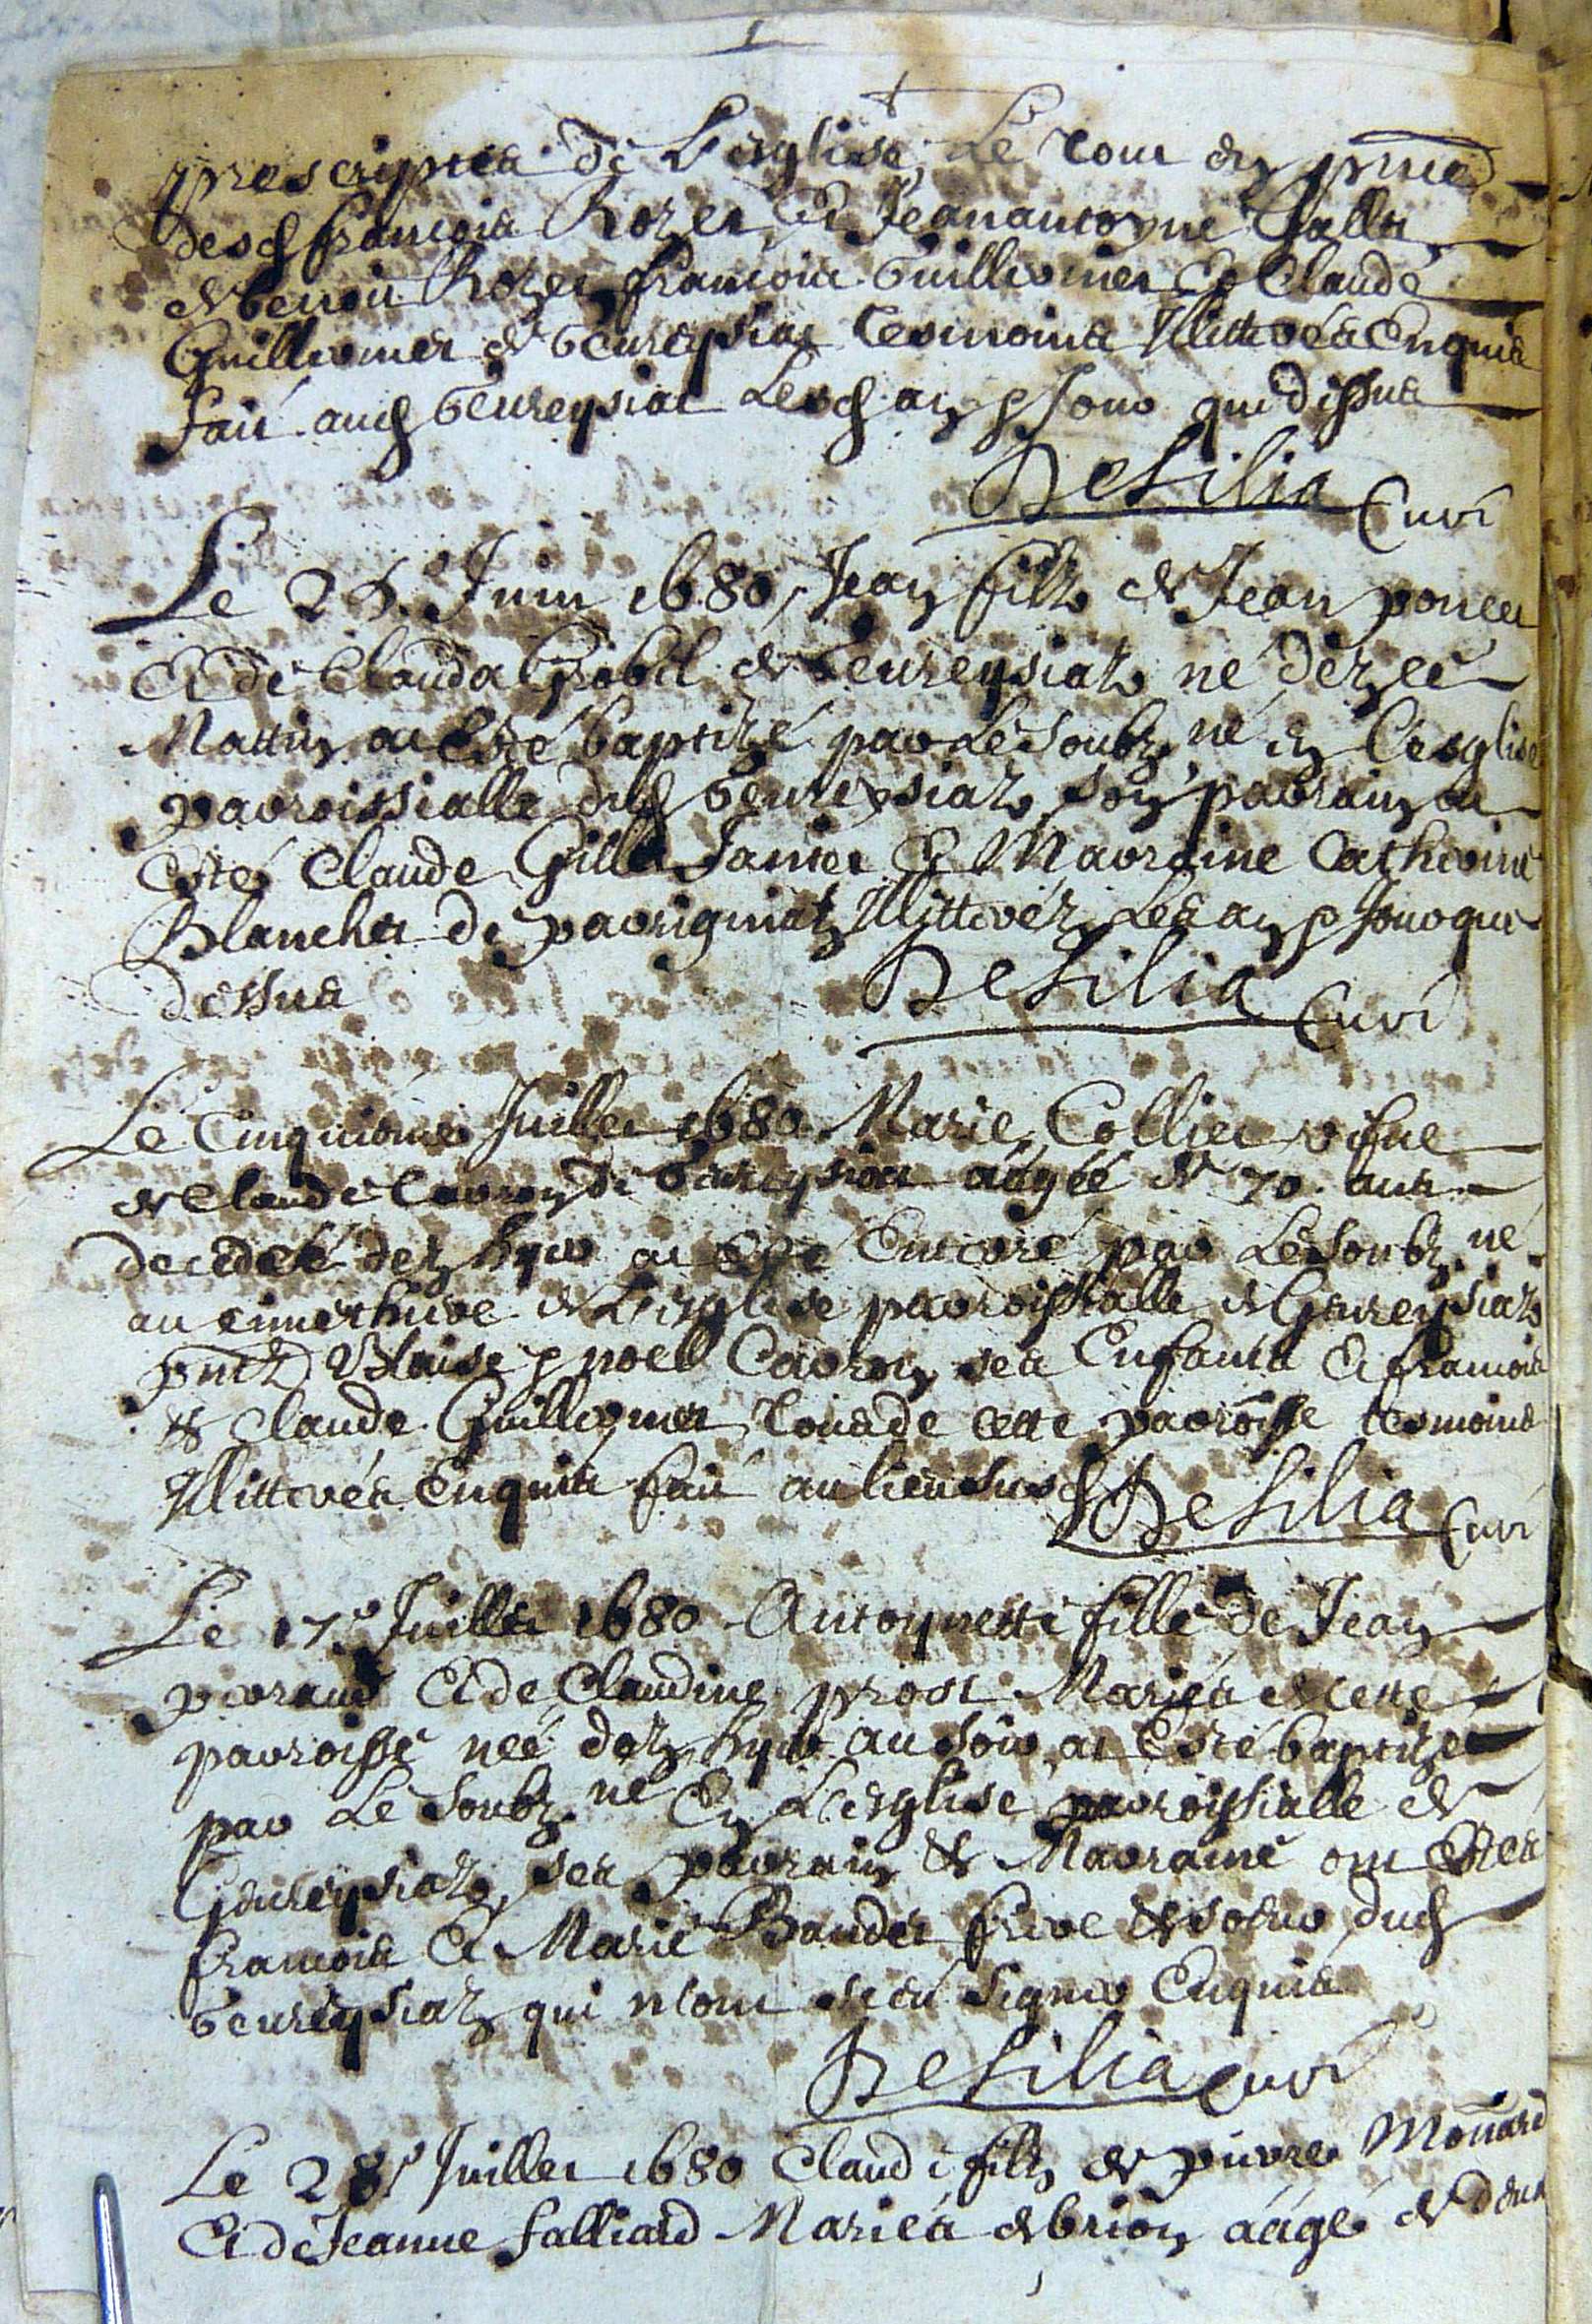 1
prescriptes de L'esglise, Le tout en pnce
desd francois Rozet, Et Jeanantoyne Gallet
de benoit Rozet francois Guillermet Et Claude
Guillermet de Geureysiat tesmoins Illitterés Enquis
fait aud Geureysiat Lesd an & Jour que dessus
DeSilia Curé
Le 26e Juin 1680, Jean filz de Jean poncet
Et de Clauda Grobel de Geureysiatz né dez ce
Mattin at Esté baptizé par Le Soubz.né en L'esglise
parroissialle dud Geureysiatz, son parrain at
Esté Claude Gillet Et Marraine Catherine
Blanchet de parrignat Illitteréz Les an & Jour que
dessus
DeSilia Curé
Le Cinquieme Juillet 1680 Marie Collet vefue
de Claude Carron de Geureysiat aagée de 70 ans
decedée dez hyer at Esté Enterré par Le Soubz.né
au cimethiere de L'esglise parroissialle de Geureysiatz
pntz Blaise & noel Carron ses Enfants Et francois
& Claude Guillermet tous de cette parroisse tesmoins
Illitterés Enquis fait au lieu susd DeSilia Curé
Le 17e Juillet 1680 Antoynette fille de Jean
perraud Et de Claudine prost Mariés de cette
parroisse neé dez hyer au soir at Esté baptizée
par Le Soubz.né En L'esglise parroissialle de
Geureysiatz, ses parrain & Marraine ont Estés
francois Et Marie Baudet frere & soeur dud
Geureysiatz qui n'ont sceu signer Enquis
DeSilia curé
Le 28e Juillet 1680 Claude filz de pierre Monard
Et de Jeanne falliard Mariés de brion aagé de deux